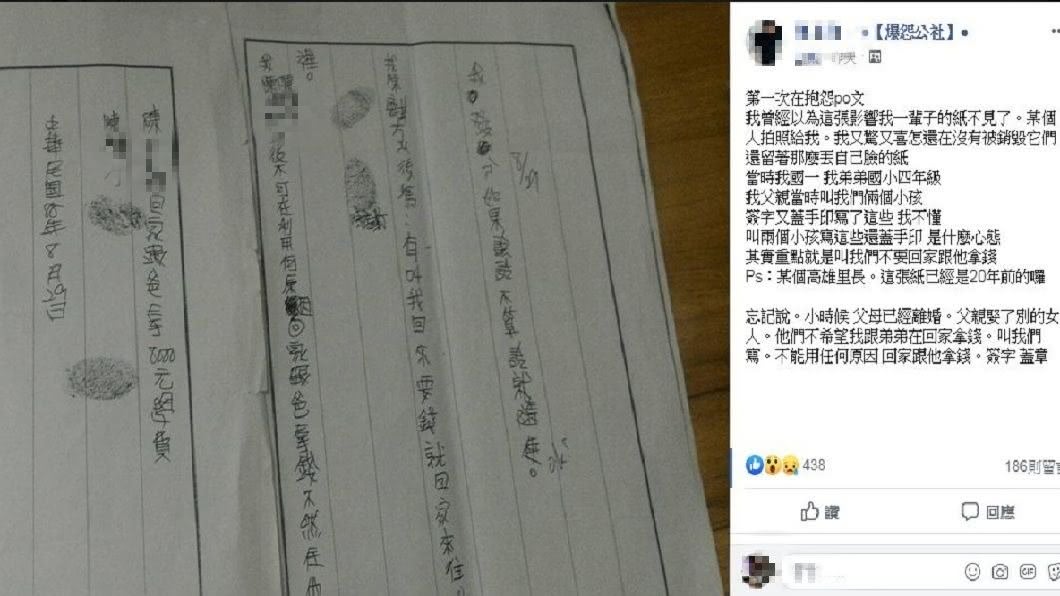 8/29
如果說話不算話就讓
有叫我回來要錢就回家來住。
我
後不可在利用何原
回家跟爸拿錢不然在
陳
回家跟爸拿8000元學費
中華民國
年8月29日
•【爆怨公社】•
第一次在抱怨po文
我曾經以為這張影響我一輩子的紙不見了。某個
人拍照給我。我又驚又喜怎還在沒有被銷毀它們
還留著那麼丟自己臉的紙
當時我國一 我弟弟國小四年級
我父親當時叫我們倆個小孩
簽字又蓋手印寫了這些 我不懂
叫兩個小孩寫這些還蓋手印 是什麼心態
其實重點就是叫我們不要回家跟他拿錢
Ps：某個高雄里長。這張紙已經是20年前的囉
忘記說。小時候 父母已經離婚。父親娶了別的女
人。他們不希望我跟弟弟在回家拿錢。叫我們
寫。不能用任何原因 回家跟他拿錢。簽字 蓋章
438
186則留言
讚
回應
GIF